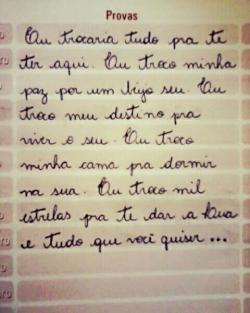 Provas
Eu trocaria tudo pra te
ter aqui. Eu troco minha
paz por um beijo seu. Eu
troco meu destino pra
viver o seu. Eu troco
minha cama pra dormir
na sua. Eu troco mil
estrelas pra te dar a Lua
e tudo que você quiser ...